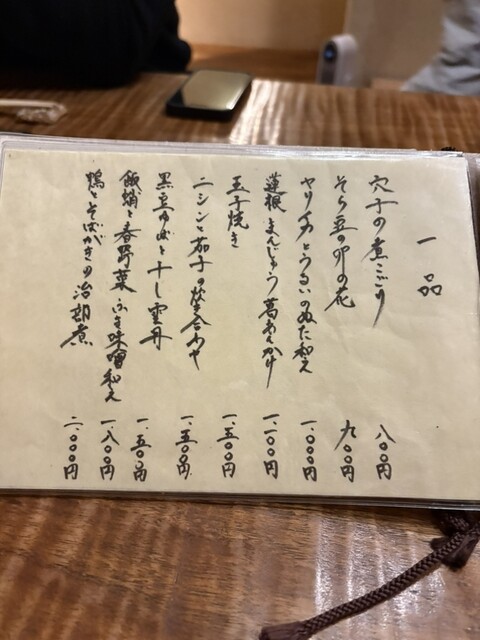 一品
穴子の煮こごり 八〇〇円
そら豆の卯の花 九〇〇円
ヤリイカとうるいのぬた和え 一、〇〇〇円
蓮根まんじゅう 葛あんかけ 一、一〇〇円
玉子焼き 一、五〇〇円
ニシンと茄子の炊き合わせ 一、五〇〇円
黒豆ゆばと干し雲丹 一、五〇〇円
飯蛸と春野菜 ふき味噌和え 一、八〇〇円
鴨とそばがきの治部煮 二、〇〇〇円